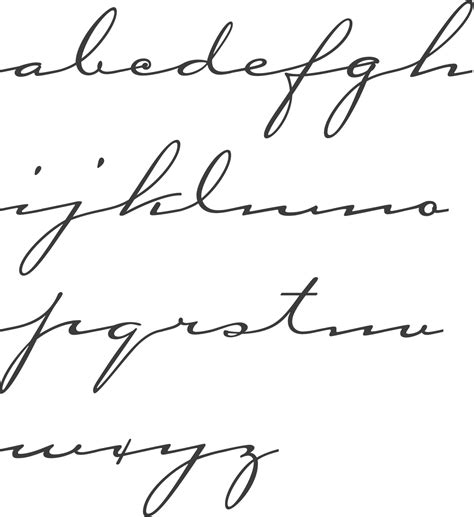 abcdefgh
ijklmno
pqrstuv
wxyz